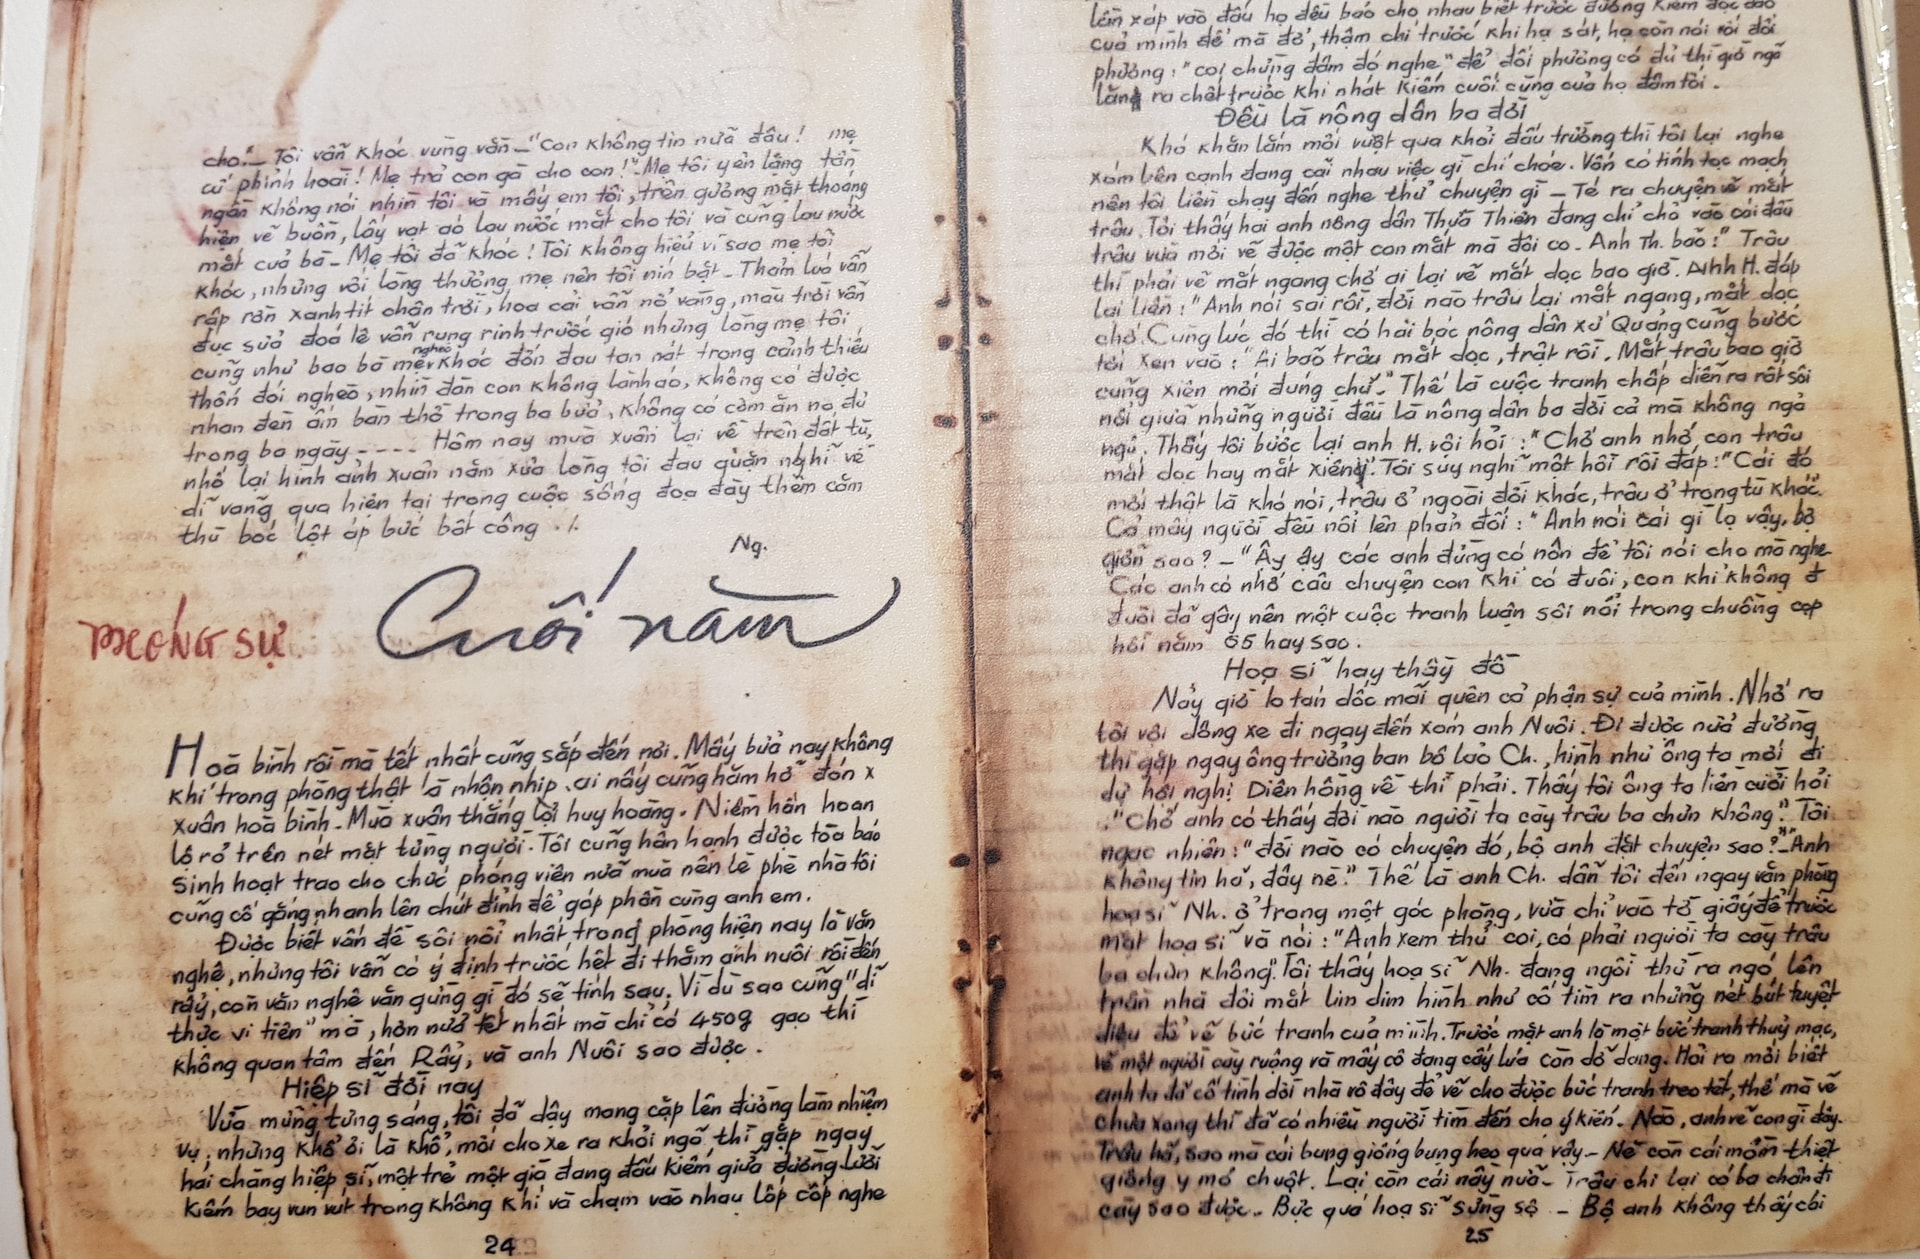 cho"_ Tôi vẫn khóc vùng vằn _ "Con không tin nữa đâu! mẹ
cứ phỉnh hoài! Mẹ trả con gà cho con!" _ Mẹ tôi yên lặng tần
ngần không nói nhìn tôi và mấy em tôi, trên gương mặt thoáng
hiện vẽ buồn, lấy vạt áo lau nước mắt cho tôi và cũng lau nước
mắt của bà _ Mẹ tôi đã khóc! Tôi không hiểu vì sao mẹ tôi
khóc, nhưng với lòng thương mẹ nên tôi nín bặt _ Thảm lúa vẫn
rập rờn xanh tít chân trời, hoa cải vẫn nở vàng, màu trời vẫn
đục sữa đoá lê vẫn rung rinh trước gió nhưng lòng mẹ tôi
cũng như bao bà mẹ nghèo khác đớn đau tan nát trong cảnh thiếu
thốn đói nghèo, nhìn đàn con không lành áo, không có được
nhan đèn ấm bàn thờ trong ba bửa, không có cơm ăn no đủ
trong ba ngày ---- Hôm nay mùa xuân lại về trên đất tù,
nhớ lại hình ảnh xuân năm xưa lòng tôi đau quặn nghĩ về
dĩ vãng qua hiện tại trong cuộc sống đoạ đày thêm căm
thù bóc lột áp bức bất công ./.
Ng.
PHÓNG SỰ.
Cuối năm
Hoà bình rồi mà tết nhất cũng sắp đến nơi. Mấy bửa nay không
khí trong phòng thật là nhộn nhịp, ai nấy cũng hăm hở đón x
xuân hoà bình _ Mùa xuân thắng lợi huy hoàng. Niềm hân hoan
lộ rỏ trên nét mặt từng người. Tôi cũng hân hạnh được tòa báo
sinh hoạt trao cho chức phóng viên nửa mùa nên lè phè như tôi
cũng cố gắng nhanh lên chút đỉnh để góp phần cùng anh em.
Được biết vấn đề sôi nổi nhất trong phòng hiện nay là văn
nghệ, nhưng tôi vẫn có ý định trước hết đi thăm anh nuôi rồi đến
rẩy, còn văn nghê văn gừng gì đó sẽ tính sau. Vì dù sao cũng "dĩ
thực vi tiên" mà, hơn nửa tết nhất mà chỉ có 450g gạo thì
không quan tâm đến Rẩy, và anh Nuôi sao được.
Hiệp sĩ đời nay
Vừa mừng tưng sáng, tôi đã dậy mang cặp lên đường làm nhiệm
vụ, nhưng khổ ôi là khổ, mới cho xe ra khỏi ngõ thì gặp ngay
hai chàng hiệp sĩ, một trẻ một già đang đấu kiếm giữa đường lưỡi
kiếm bay vun vút trong không khí và chạm vào nhau lốp cốp nghe
24
lần xáp vào đấu họ đều báo cho nhau biết trước đường kiếm độc đáo
của mình để mà đở, thậm chí trước khi hạ sát, họ còn nói rồi đối
phương: "coi chừng đâm đó nghe" để đối phương có đủ thì giờ ngã
lăng ra chết trước khi nhát kiếm cuối cùng của họ đâm tới.
Đều là nông dân ba đời
Khó khăn lắm mới vượt qua khỏi đấu trường thì tôi lại nghe
xóm bên cạnh đang cãi nhau việc gì chí chóe. Vốn có tính tọc mạch
nên tôi liền chạy đến nghe thử chuyện gì _ Té ra chuyện vẽ mắt
trâu. Tôi thấy hai anh nông dân Thừa Thiên đang chỉ chỏ vào cái đầu
trâu vừa mới vẽ được một con mắt mà đôi co. Anh Th. bảo: "Trâu
thì phải vẽ mắt ngang chớ ai lại vẽ mắt dọc bao giờ. Anh H. đáp
lại liền: "Anh nói sai rồi, đời nào trâu lại mắt ngang, mắt dọc
chớ. Cùng lúc đó thì có hai bác nông dân xứ Quảng cũng bước
tới xen vào: "Ai bảo trâu mắt dọc, trật rồi. Mắt trâu bao giờ
cũng xiên mới đúng chứ." Thế là cuộc tranh chấp diễn ra rất sôi
nổi giữa những người đều là nông dân ba đời cả mà không ngả
ngũ. Thấy tôi bước lại anh H. vội hỏi: "Chớ anh nhớ, con trâu
mắt dọc hay mắt xiên". Tôi suy nghĩ một hồi rồi đáp: "Cái đó
mới thật là khó nói, trâu ở ngoài đời khác, trâu ở trong tù khác".
Cả mấy người đều nổi lên phản đối: "Anh nói cái gì lạ vậy, bộ
giởn sao? _ "Ậy ậy các anh đừng có nôn để tôi nói cho mà nghe
Các anh có nhớ câu chuyện con khỉ có đuôi, con khỉ không đ
đuôi đã gây nên một cuộc tranh luận sôi nổi trong chuồng cọp
hồi năm 65 hay sao.
Hoạ sĩ hay thầy đồ
Nảy giờ lo tán dốc mãi quên cả phận sự của mình. Nhớ ra
tôi vội dông xe đi ngay đến xóm anh Nuôi. Đi được nửa đường
thì gặp ngay ông trưởng ban bô lão Ch., hình như ông ta mới đi
dự hội nghị Diên hồng về thì phải. Thấy tôi ông ta liền cười hỏi
: "Chớ anh có thấy đời nào người ta cày trâu ba chưn không". Tôi
ngạc nhiên: "đời nào có chuyện đó, bộ anh đặt chuyện sao?" _ "Anh
không tin hả, đây nè." Thế là anh Ch. dẫn tôi đến ngay văn phòng
hoạ sĩ Nh. ở trong một góc phòng, vừa chỉ vào tờ giấy để trước
mặt hoạ sĩ và nói: "Anh xem thử coi, có phải người ta cày trâu
ba chưn không". Tôi thấy hoạ sĩ Nh. đang ngồi thừ ra ngó lên
trần nhà đôi mắt lim dim hình như cố tìm ra những nét bút tuyệt
diệu để vẽ bức tranh của mình. Trước mặt anh là một bức tranh thuỷ mạc,
vẽ một người cày ruộng và mấy cô đang cấy lúa còn dở dang. Hỏi ra mới biết
anh ta đã cố tình dời nhà vô đây để vẽ cho được bức tranh treo tết, thế mà vẽ
chưa xong thì đã có nhiều người tìm đến cho ý kiến. Nào, anh vẽ con gì đây.
Trâu hả, sao mà cái bụng giống bụng heo quá vậy _ Nè còn cái mồm thiệt
giống y mỏ chuột. Lại còn cái nầy nữa _ Trâu chi lại có ba chân đi
cày sao được _ Bực quá hoạ sĩ sừng sộ _ Bộ anh không thấy cái
25